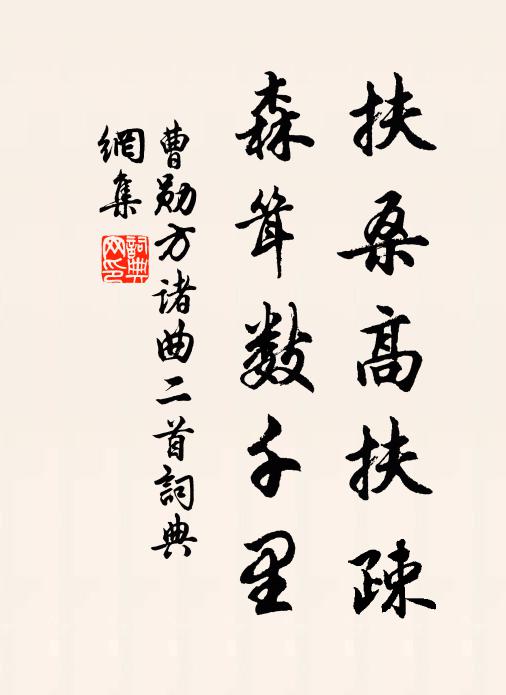 扶桑高扶疎
森耸数千里
曹勋方诸曲二首詞典
網集
詞典
网印